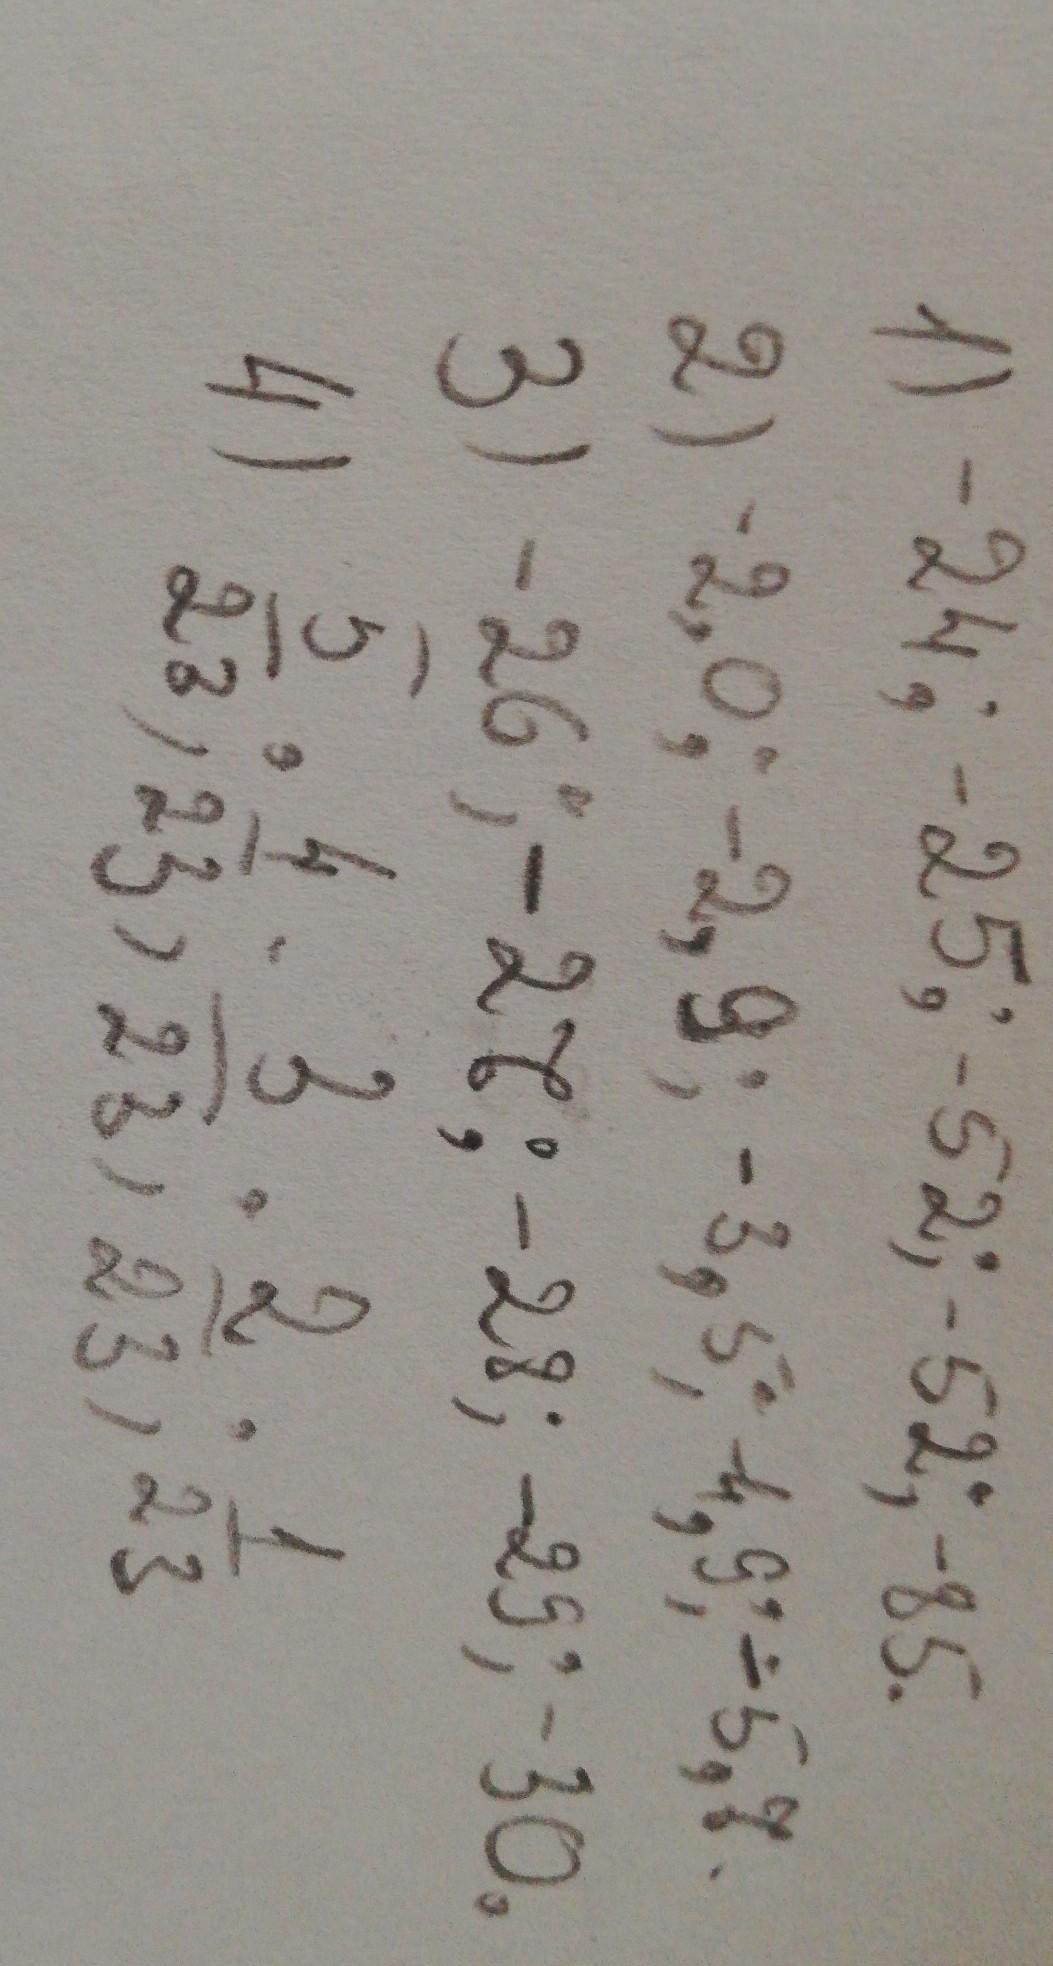 1) -24; -25; -52; -52; -85.
2) -2,0; -2,9; -3,5; -4,9; -5,7.
3) -26; -27; -28; -29; -30.
4) 5/23; 4/23; 3/23; 2/23; 1/23